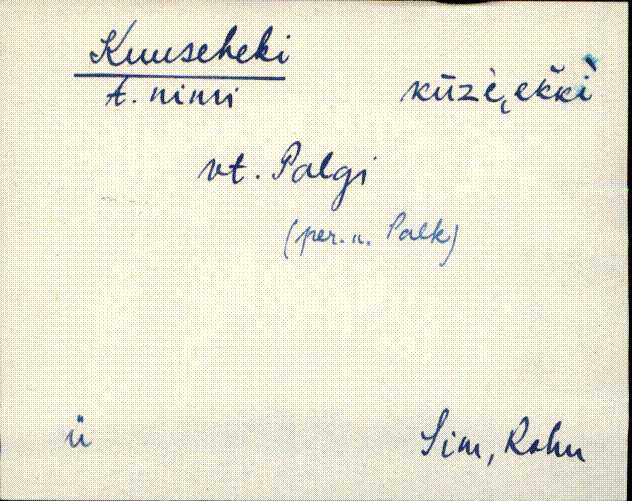 Kuuseheki
t. nimi kūzè‿ekkì
vt. Palgi
(per. n. Palk)
ü Sim, Rahu